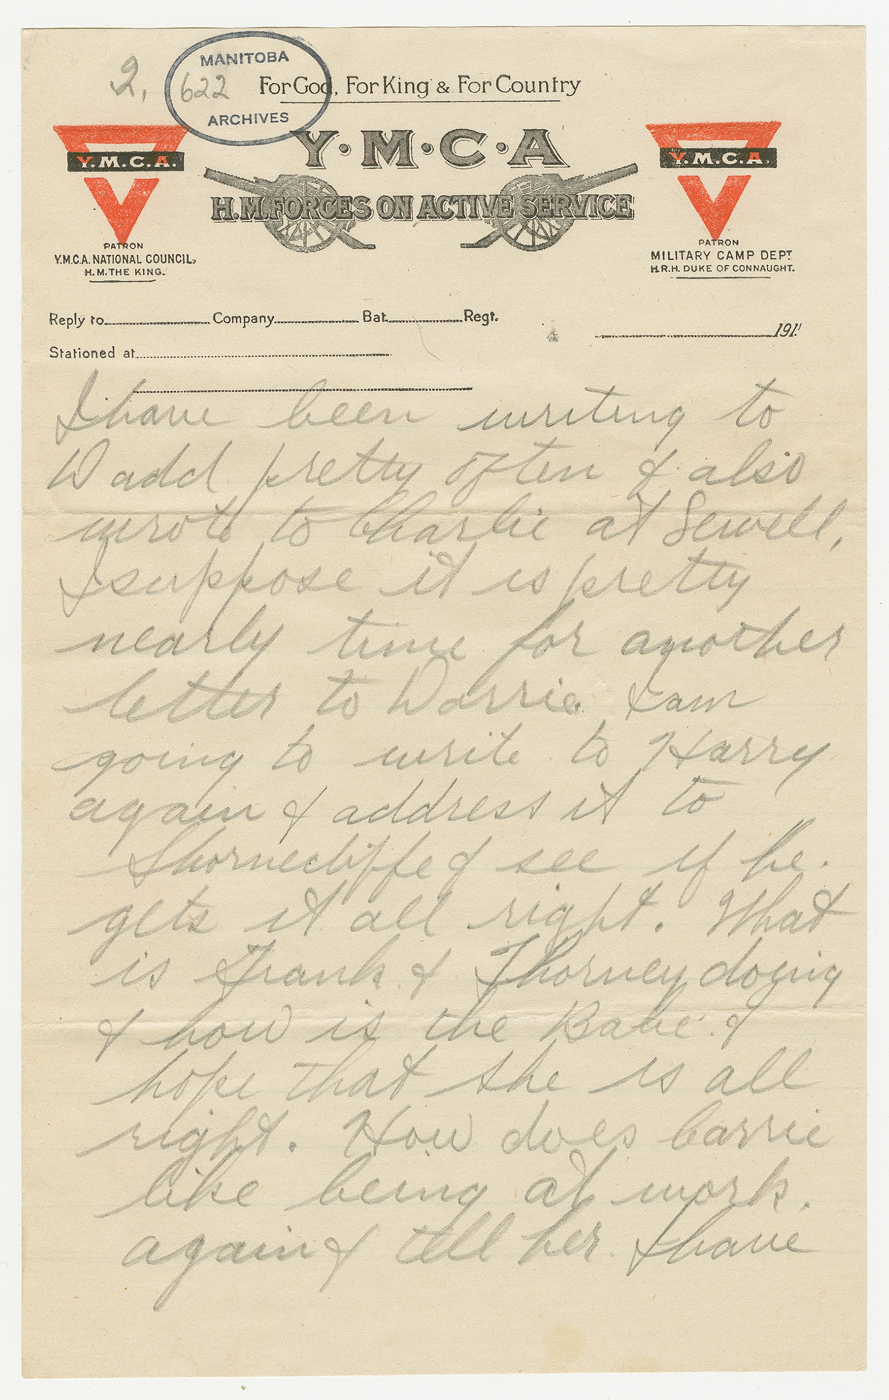 2.
MANITOBA
622
ARCHIVES
For God, For King & For Country
Y·M·C·A
H.M. FORCES ON ACTIVE SERVICE
Y.M.C.A.
PATRON
Y.M.C.A. NATIONAL COUNCIL.
H.M. THE KING.
Y.M.C.A.
PATRON
MILITARY CAMP DEPT.
H.R.H. DUKE OF CONNAUGHT.
Reply to Company Bat. Regt.
191
Stationed at
I have been writing to
Wadd pretty often & also
wrote to Charlie at Sewell,
I suppose it is pretty
nearly time for another
letter to Dorrie I am
going to write to Harry
again & address it to
Shornecliffe & see if he
gets it all right. What
is Frank & Thorney doing
& how is the Babe &
hope that she is all
right. How does Carrie
like being at work
again & tell her I have